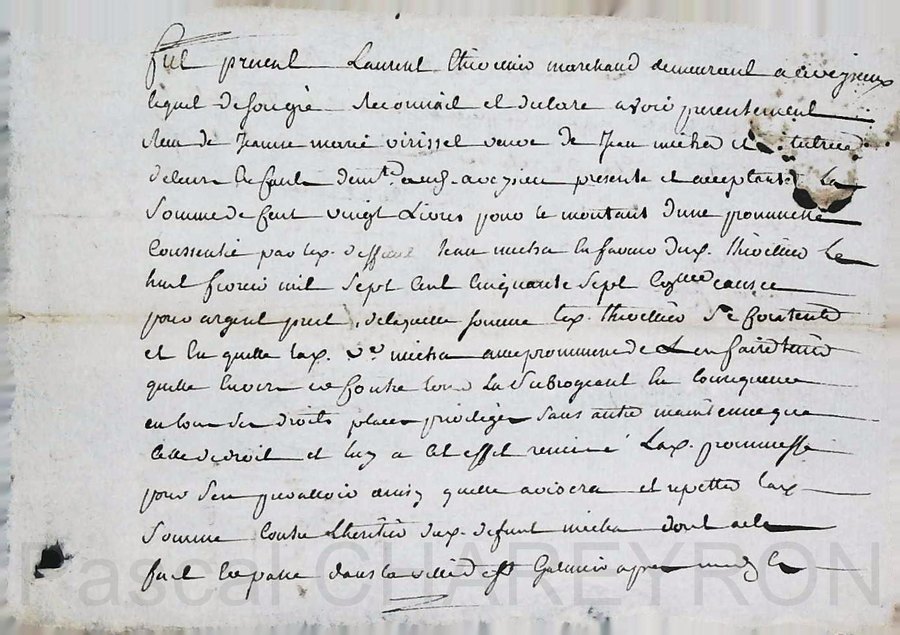 fut present Laurent thiollier marchand demeurant a aveysieux
lequel de son gré reconnait et declare avoir presentement
Receu de Jeanne marie virissel veuve de Jean micha et tutrice
de leurs Enfants aud. aveysieu presente et acceptante La
Somme de Cent vingt Livres pour le montant d'une promesse
Consentie par led. deffunt Jean micha En faveur dud. thiollier Le
huit fevrier mil Sept Cent Cinquante Sept Causée
pour argent preté, de laquelle somme led. thiollier Se Contente
et En quitte lad. ve. micha avec promesse de L'en faire tenir
quitte Envers et Contre tous La Subrogeant En Consequence
en tous Ses droits place privileges Sans autre maintenue que
Celle de droit et luy a a cet effet remis Lad. promesse
pour S'en prevalloir ainsy quelle avisera et repetter lad.
Somme Contre L'heritier dud. defunt micha dont acte
fait Et passé dans la ville de St Galmier apres midy Le
Pascal CHAREYRON